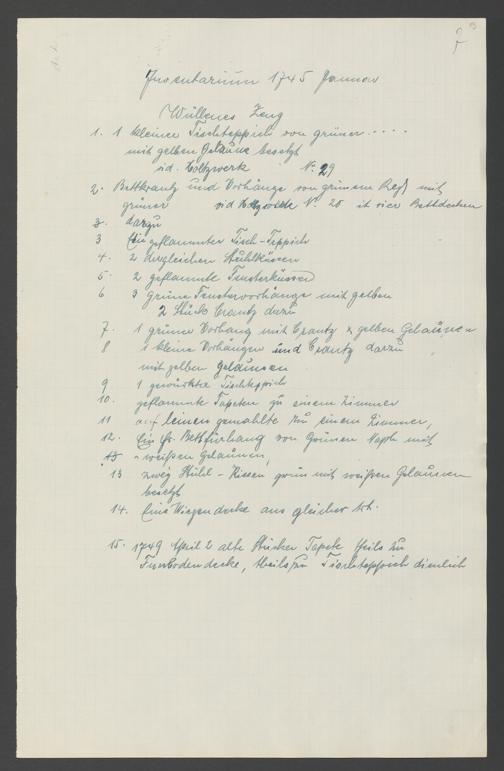 Inventarium 1745 Januar
Wüllenes Zeug
1. 1 kleiner Tischteppich von grüner ....
mit gelben Gelaune besetzt
vid. Holtzwerk N: 29
2. Bettkrantz und Vorhänge von grünem mit
grüner vid N: 28 it vier Bettdecken
3. dazu
3 Ein geflammter Tisch-Teppich
4. 2 dergleichen Stuhlküssen
5. 2 geflammte Fensterküssen
6 3 grüne Fenstervorhänge mit gelben
2 Stück Crantz dazu
7. 1 grüner Vorhang mit Crantz & gelben Gelaunen
8 1 kleine Vorhängen und Crantz dazu
mit gelben Gelaunen
9 1 gewürkter Tischteppich
10. geflammte Tapeten zu einem Zimmer
11 auf leinen gemahlte zu einem Zimmer,
12. Ein gr. Bettfürhang von Grünen Raph mit
13 weißen Gelaunen,
13 zweÿ Stuhl-Kissen grün mit weißen Gelaunen
besetzt
14. Eine Wiegendecke aus gleicher Art.
15. 1749 April 2 alte Stücker Tapete theils zu
Fussbodendecke, theils zu Tischteppich dienlich